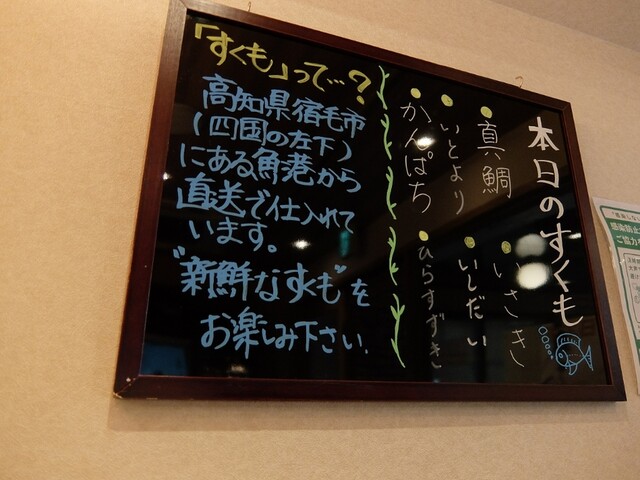 本日のすくも
・真鯛
・いさき
・いとより
・いしだい
・かんぱち
・ひらすずき
「すくも」って…?
高知県宿毛市
(四国の左下)
にある魚港から
直送で仕入れて
います。
"新鮮なすくも"を
お楽しみ下さい.